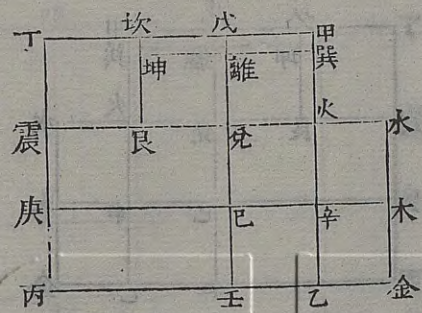 丁 坎 戊 甲
坤 離 巽
震 艮 兌 火 水
庚 巳 辛 木
丙 壬 乙 金